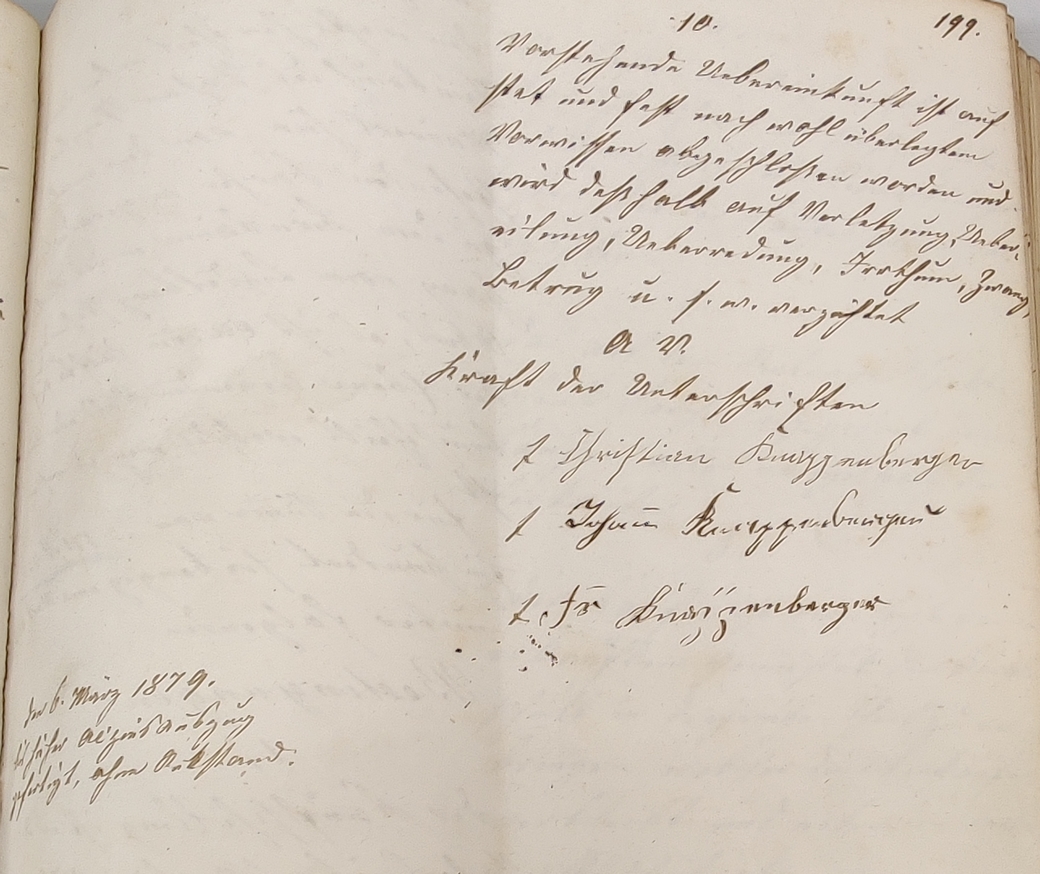 10.
199.
Vorstehende Uebereinkunft ist auf
stet und fest nach wohl überlegtem
Vorwissen abgeschlossen worden und
wird deßhalb auf Verletzung, Ueber-
eilung, Ueberredung, Irrthum, Zwang,
Betrug u. s. w. verzichtet
Kraft der Unterschriften
t Christian Knappenberger
t Johann Knappenberger
t Fr Knappenberger
den 6. März 1879.
Auszug
gefertigt, ohne Rükstand.